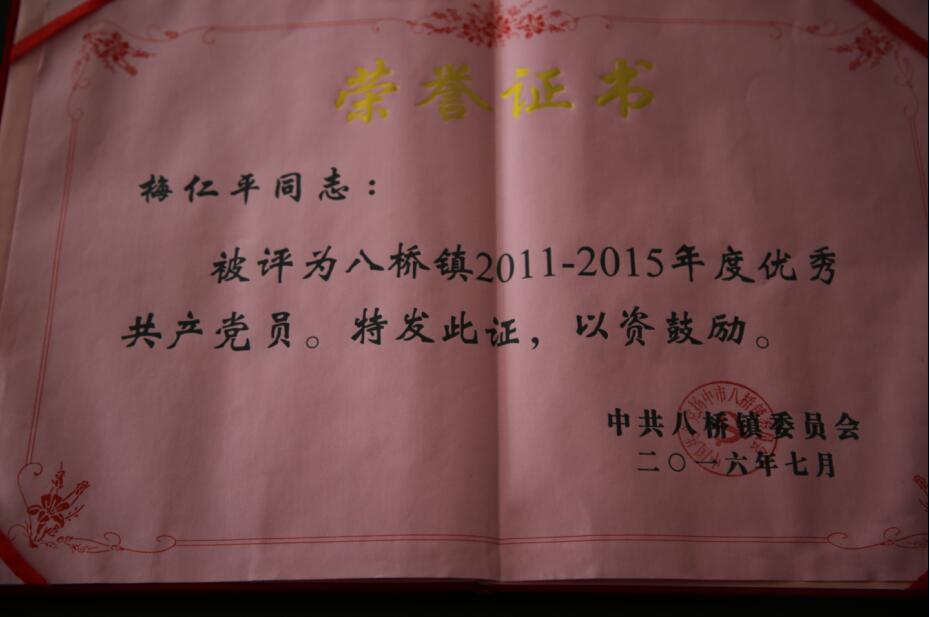 荣誉证书
梅仁平同志：
被评为八桥镇2011-2015年度优秀
共产党员。特发此证，以资鼓励。
中共八桥镇委员会
二〇一六年七月